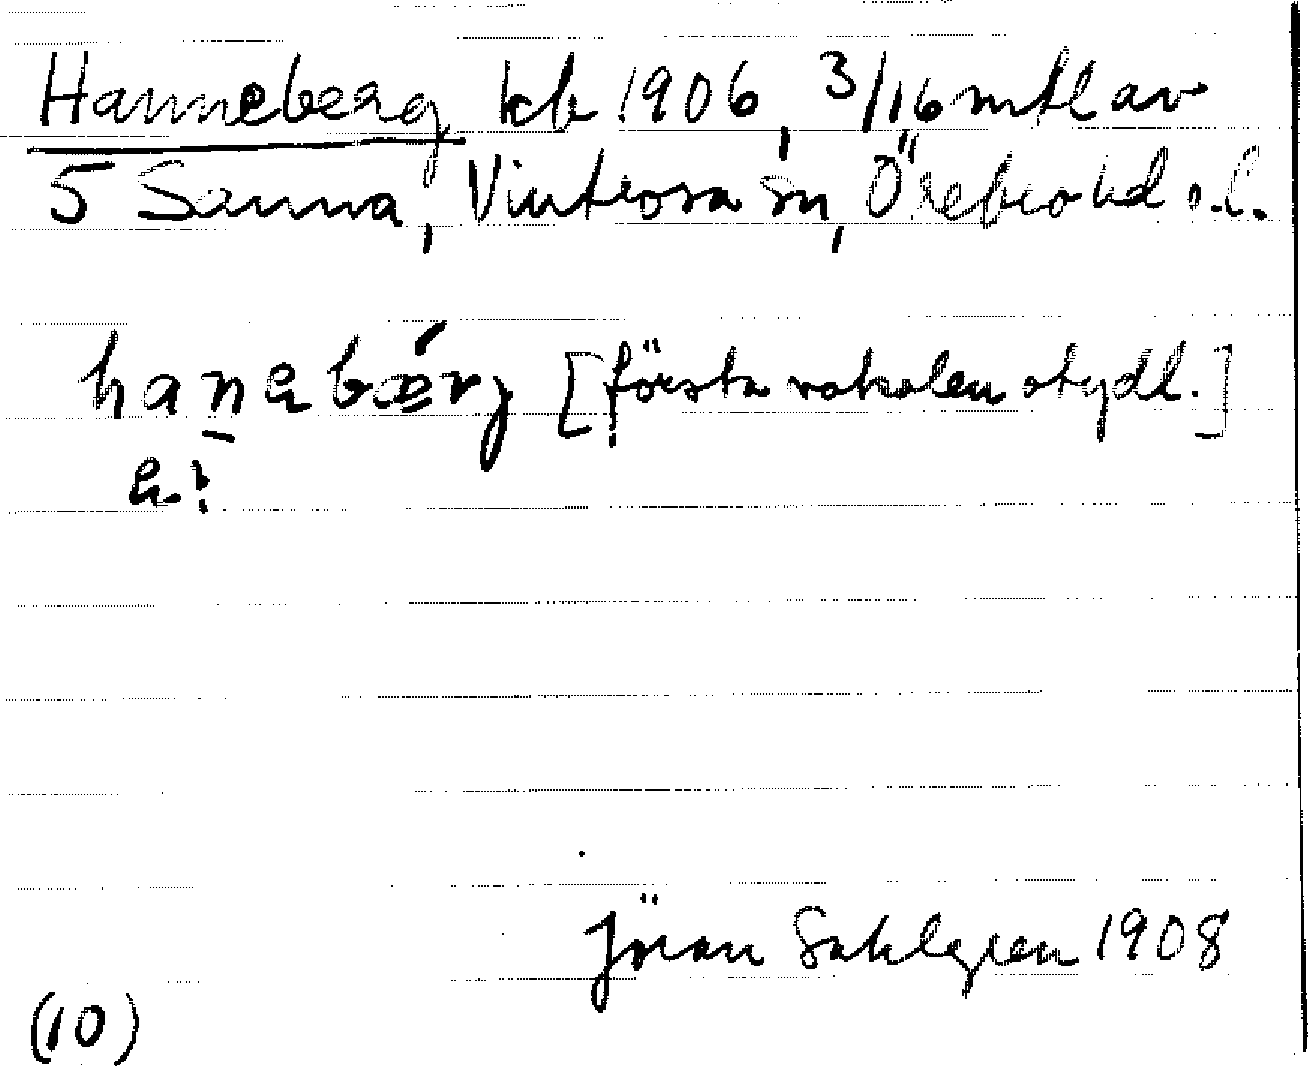 Hanneberg kb 1906, 3/16 mtl av
5 Sanna, Vintrosa sn, Örebro hd o.l.
hanebǽrg [första vokalen otydl.]
a:
Jöran Sahlgren 1908
(10)